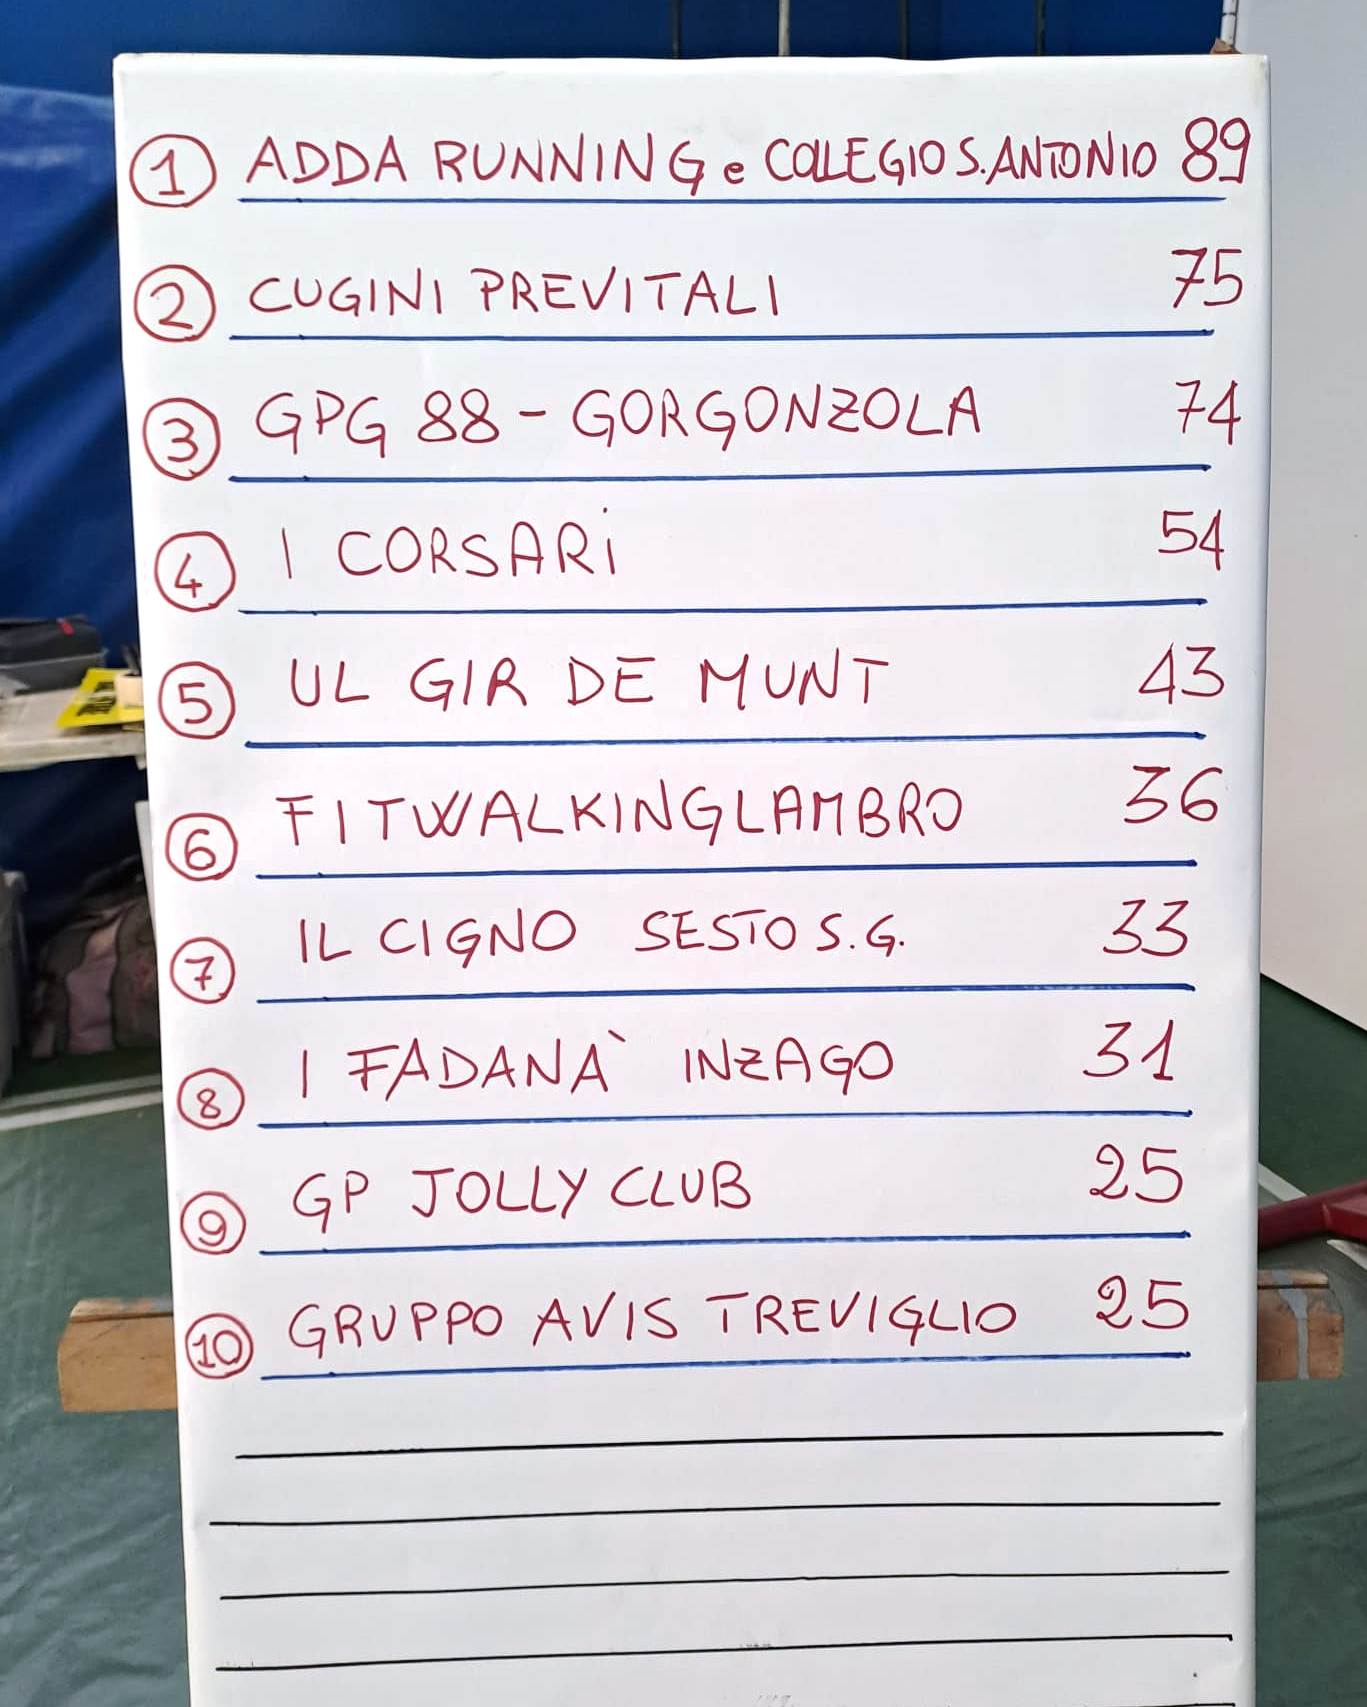 1 ADDA RUNNING e COLLEGIO S. ANTONIO 89
2 CUGINI PREVITALI 75
3 GPG 88 - GORGONZOLA 74
4 I CORSARI 54
5 UL GIR DE MUNT 43
6 FITWALKINGLAMBRO 36
7 IL CIGNO SESTO S.G. 33
8 I FADANÀ INZAGO 31
9 GP JOLLY CLUB 25
10 GRUPPO AVIS TREVIGLIO 25